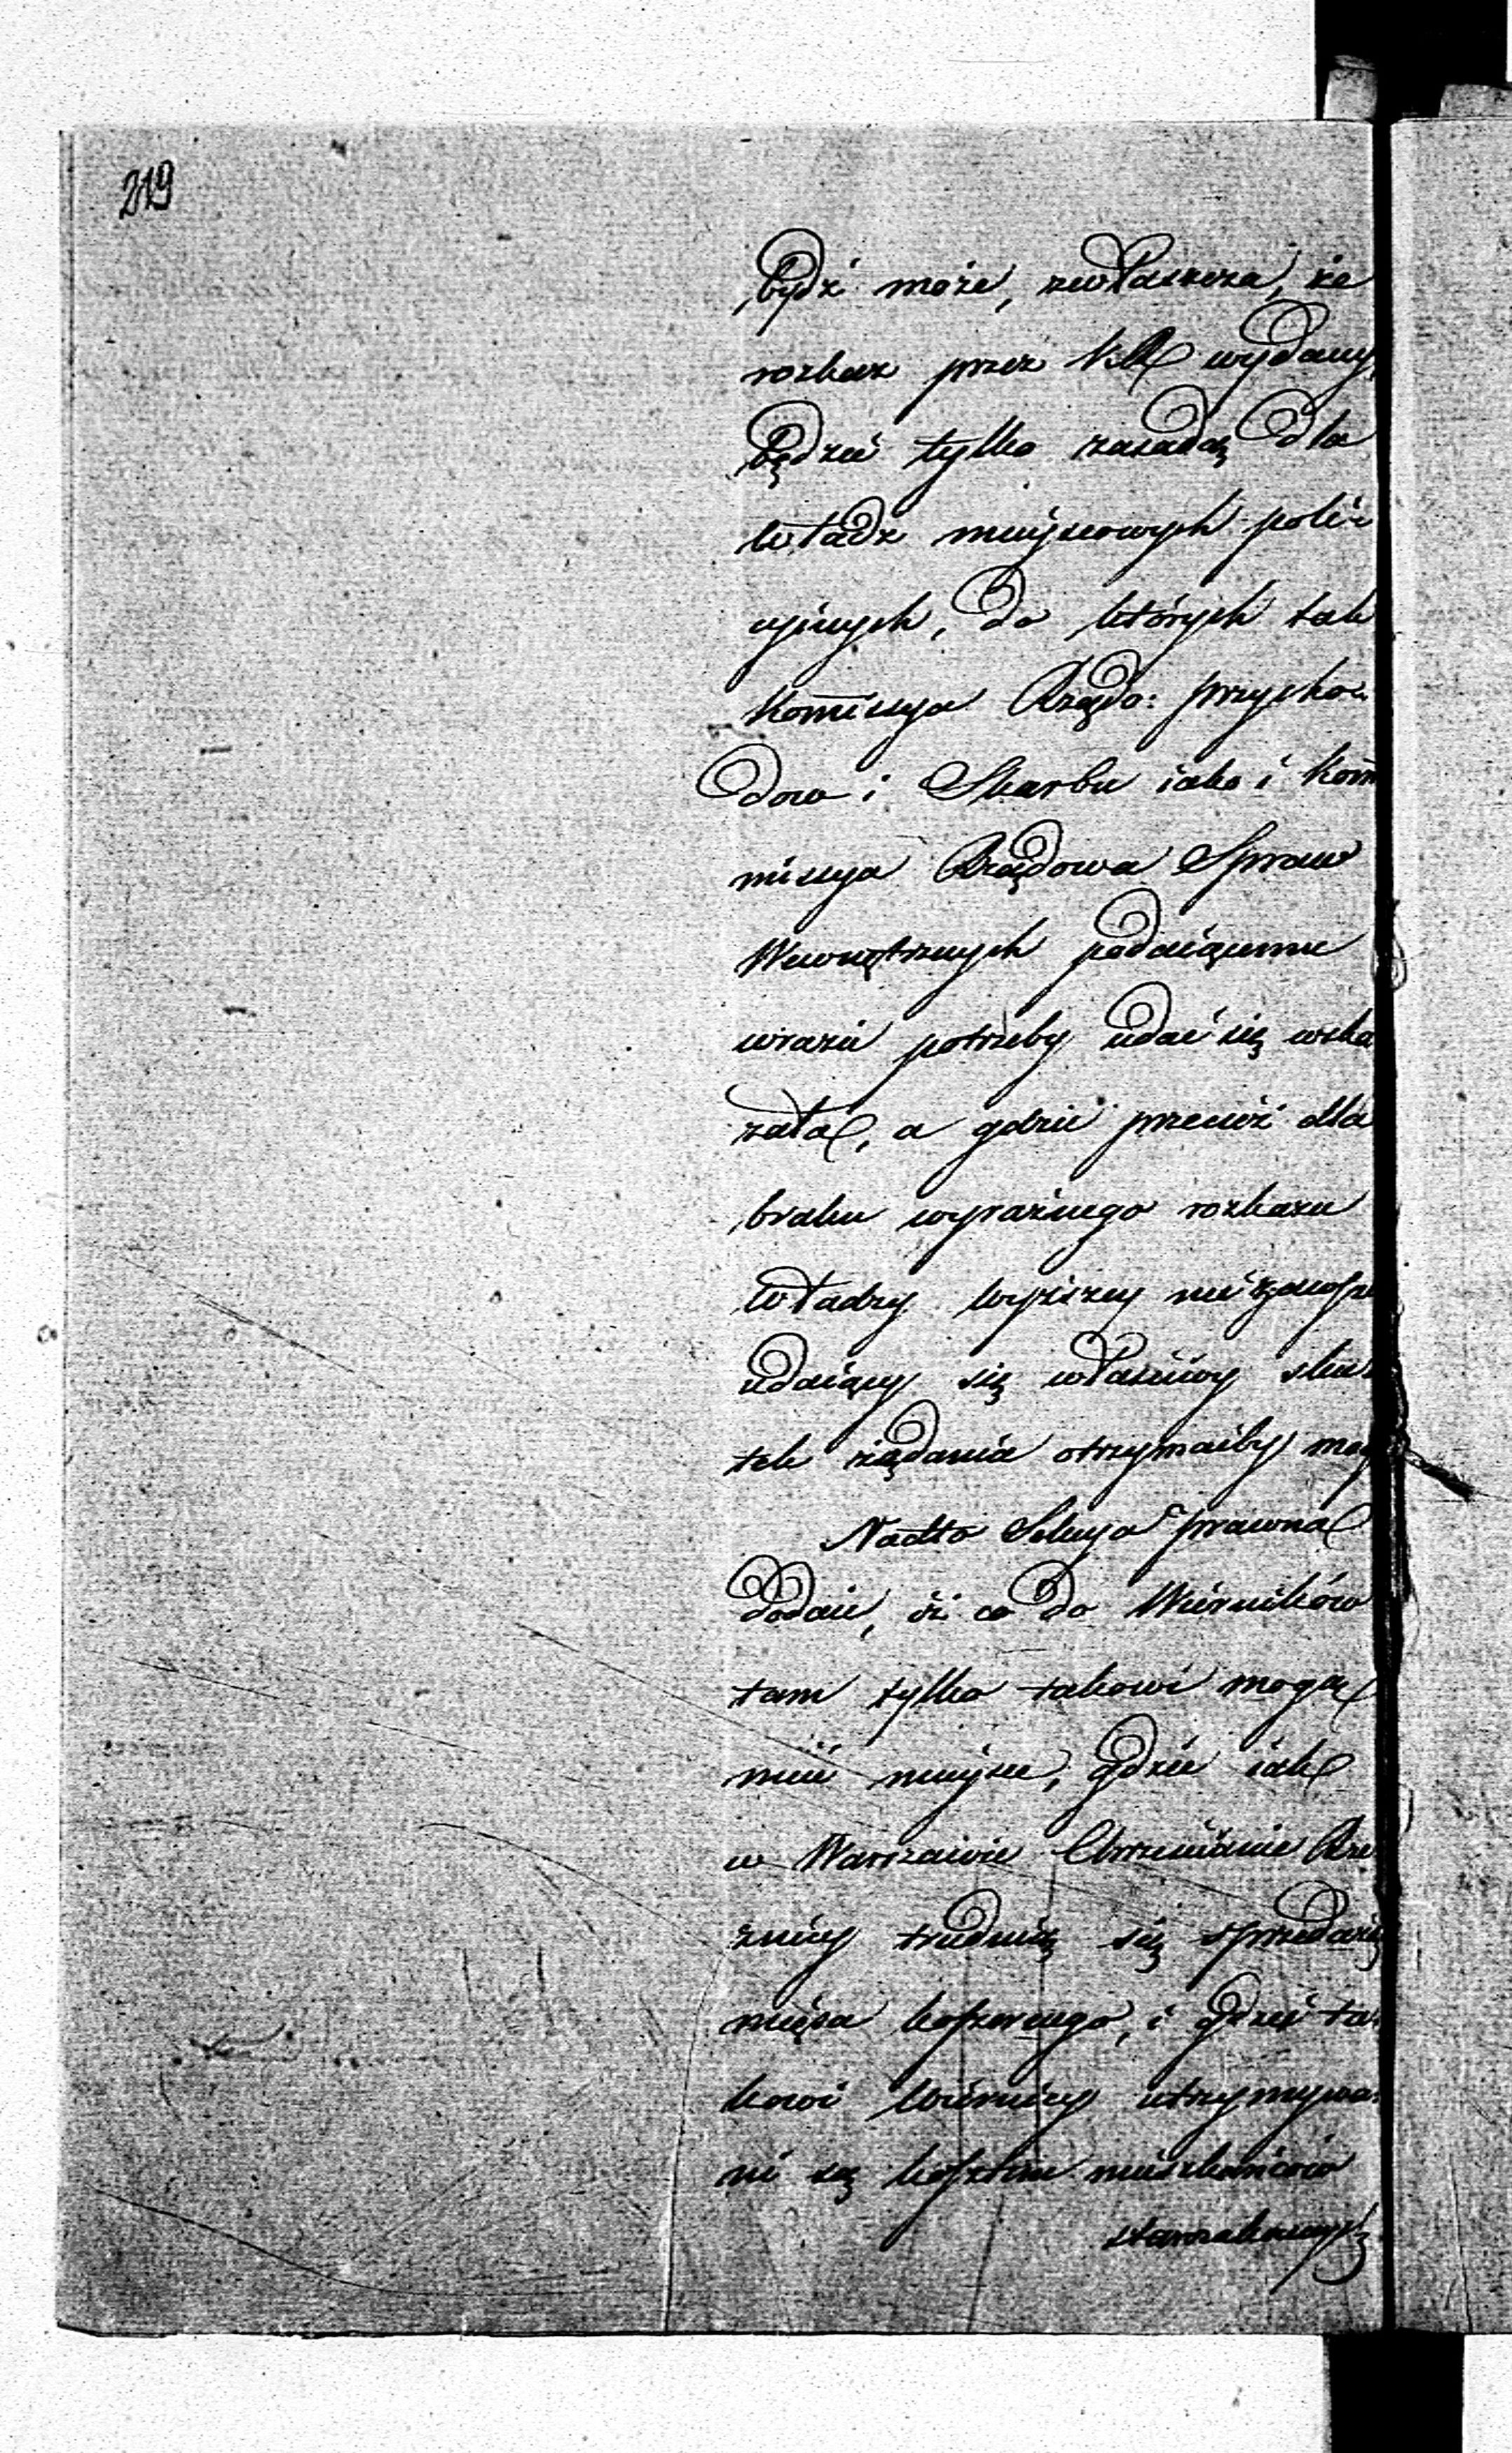 219
bydź może, zwłaszcza, że
rozkaz przez KR wydany,
będzie tylko zasadą dla
władz mieyscowych polic
yjnych, do których tak
Kom̄issya Rządo: przycho-
dow i Skarbu iako i Kom̄
missya Rządowa Spraw
Wewnętrznych podaiącemu
w razie potrzeby udać się wska
zała, a gdzie przecież dla
braku wyraźnego rozkazu
władzy wyższey nie zawsze
udaiący się właściwy sku
tek żądania otrzymaćby mog
Nadto Sekcya prawna
dodaie, iż co do Wierników
tam tylko takowi mogą
mieć mieysce, gdzie iak
w Warszawie Chrześcianie Rze
źnicy trudnią się sprzedażą
mięsa koszernego, i gdzie ta-
kowi Wiernicy utrzymywa-
ni są kosztem mieszkańców
starozakonnych